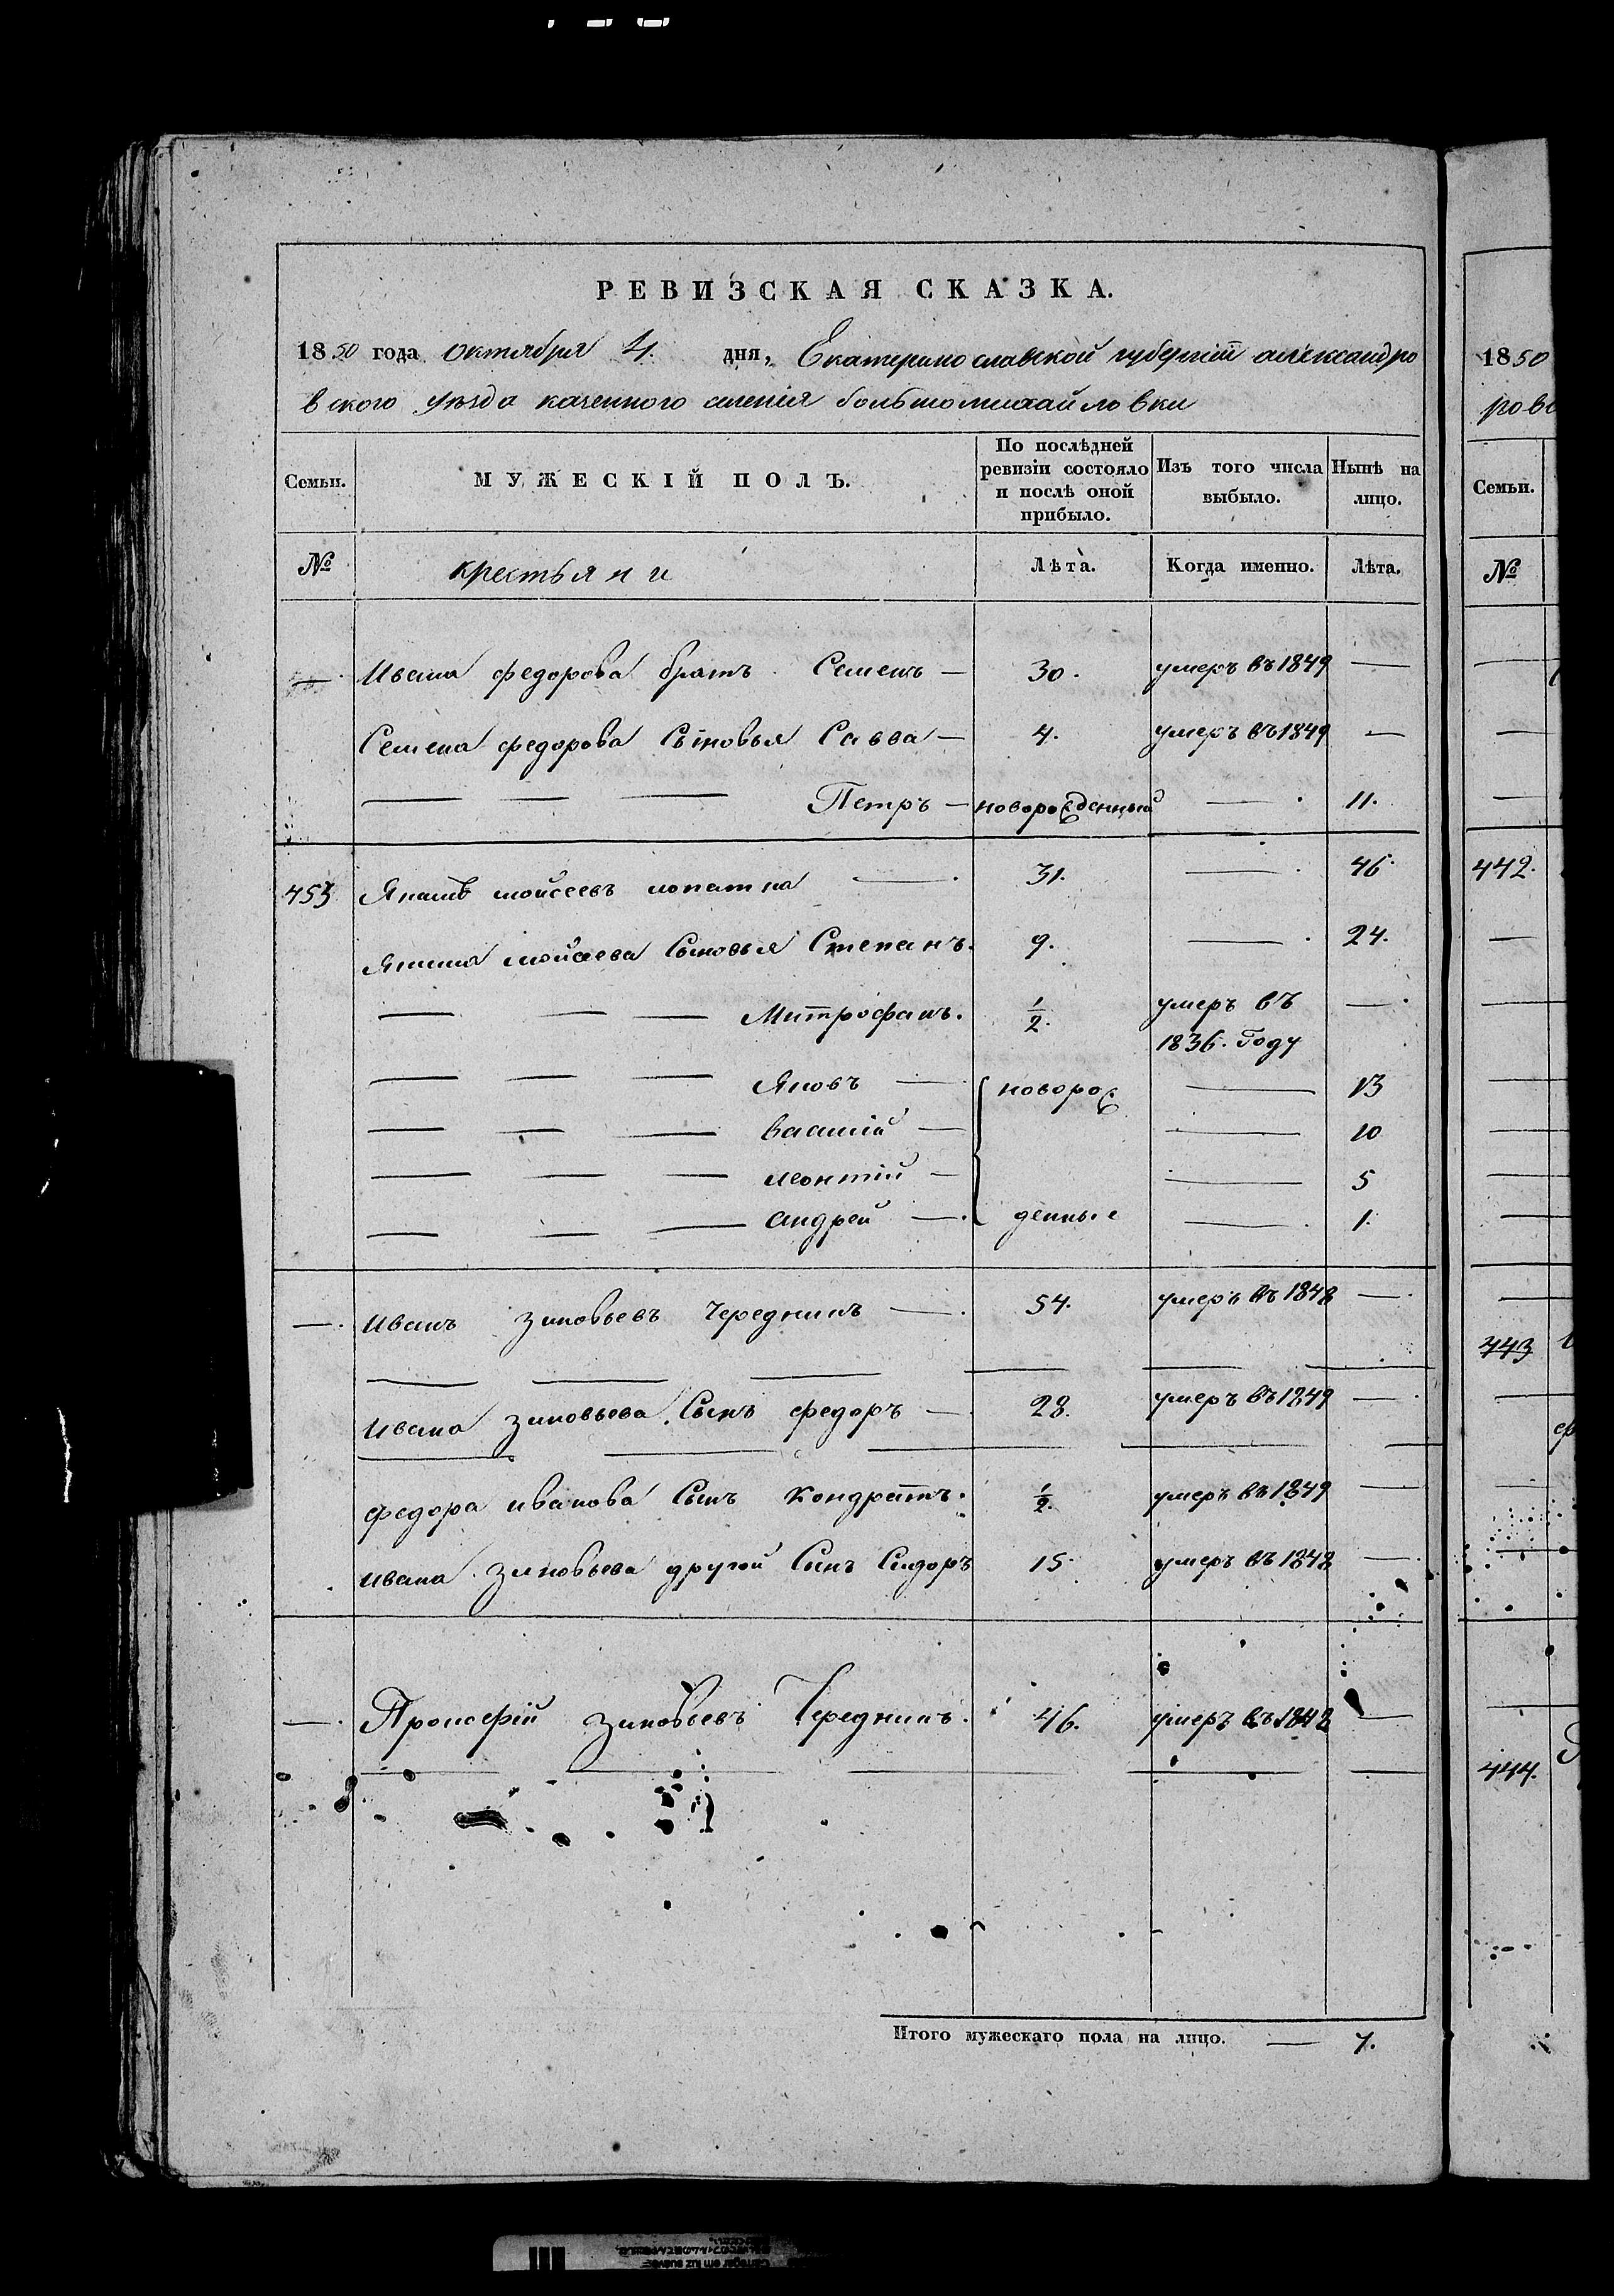 РЕВИЗСКАЯ СКАЗКА.
1850 года октября 4. дня, Екатеринославской губерніи александро
вского уѣзда казенного селенія большомихайловки
Семьи. МУЖЕСКІЙ ПОЛЪ. По послѣдней ревизіи состояло и послѣ оной прибыло. Изъ того числа выбыло. Нынѣ на лицо.
№ крестьяни Лѣта. Когда именно. Лѣта.
— Ивана федорова братъ Семенъ — 30. умеръ въ 1849 —
Семена федорова Сыновья Савва — 4. умеръ въ 1849 —
— — — Петръ — новорожденный — 11.
453 Якимъ мойсеевъ лопатка — 31. — 46.
Якима мойсеева Сыновья Степанъ. 9. — 24.
— — — Митрофанъ. 1/2. умеръ въ —
1836. Году
— — — Яковъ — новорож — 13
— — — василій — — 10
— — — леонтій — — 5
— — — андрей — денные — 1.
— Иванъ зиновьевъ Чередникъ — 54. умеръ въ 1848 —
Ивана зиновьева Сынъ федоръ — 28. умеръ въ 1849 —
федора иванова Сынъ Кондратъ. 1/2. умеръ въ 1849 —
ивана зиновьева другой Сынъ Сидоръ 15. умеръ въ 1848 —
— Прокофій зиновьевъ Чередникъ. 46. умеръ въ 1848 —
Итого мужескаго пола на лицо. — 7.
1850
ров
Семьи.
№
442.
443
444.